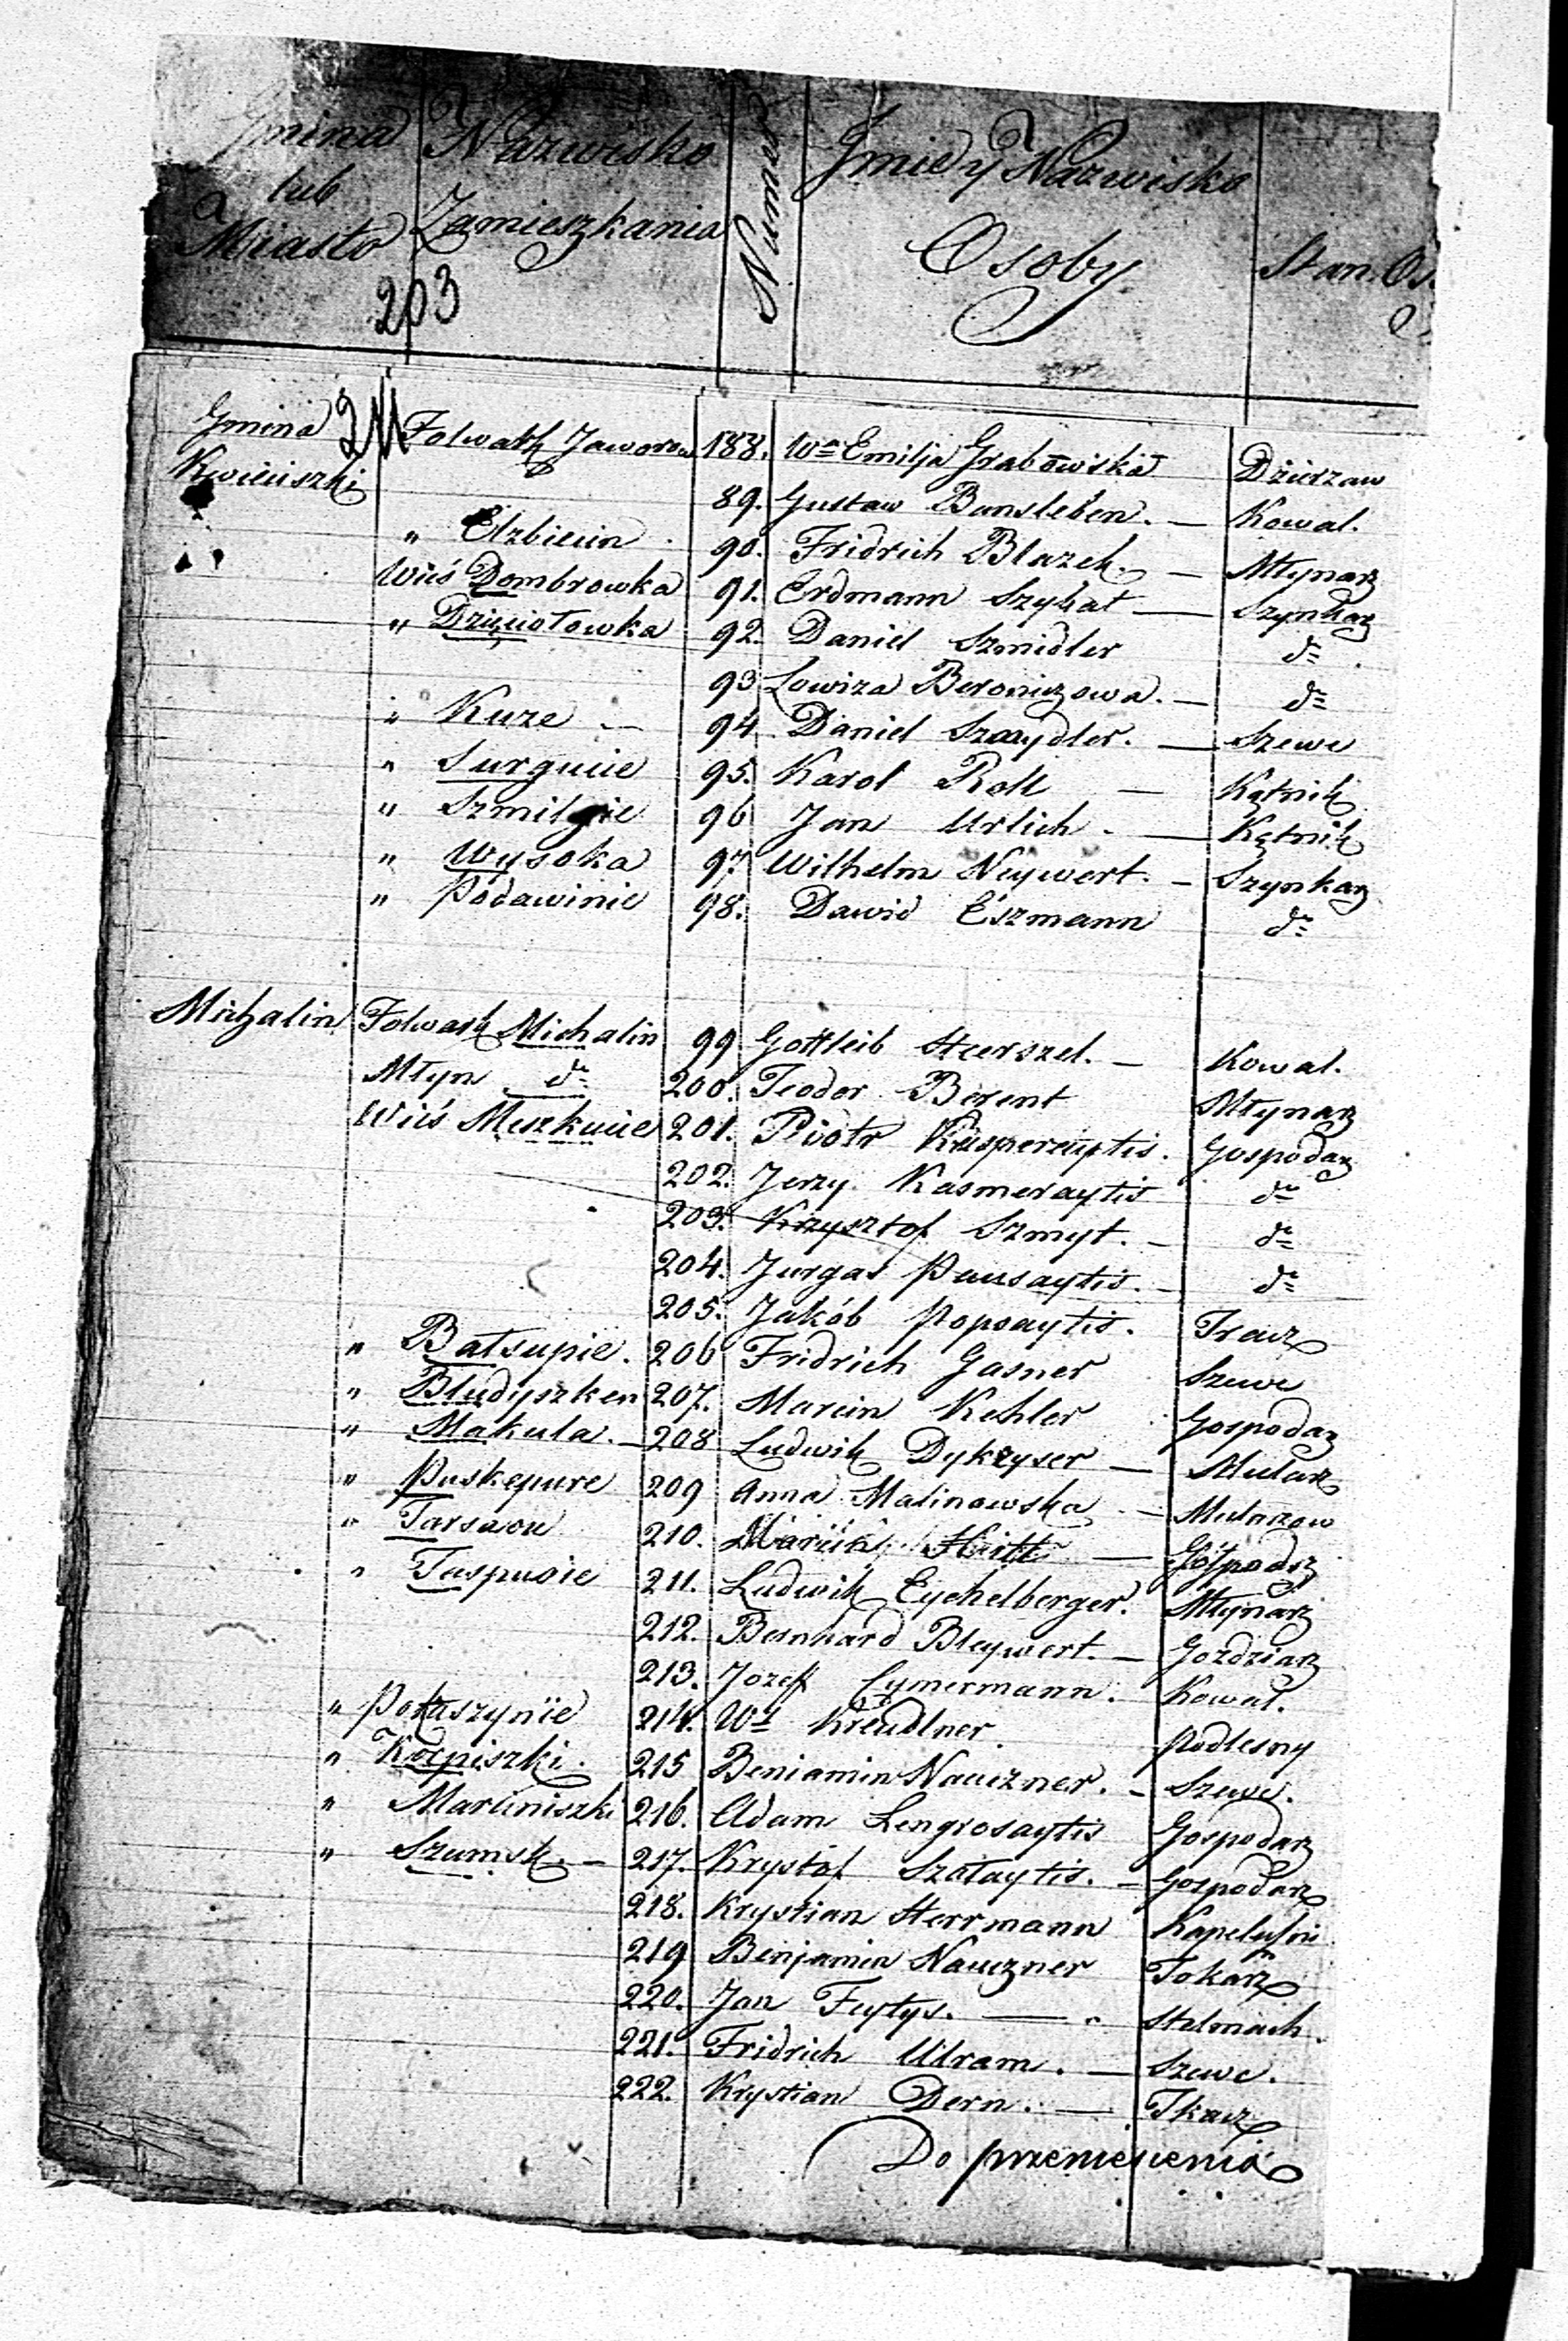 Gmina lub Miasto
Nazwisko Zamieszkania
Numer
Jmie y Nazwisko Osoby
Stan Os
203
Gmina Kwieciszki 211 Folwark Jaworow 188. Wa Emilja Grabowska Dzierzaw
89. Gustaw Bansleben. — Kowal.
" Elzbiecin 90. Fridrich Blazek. — Młynarz
Wieś Dombrowka 91. Erdmann Szykat — Szynkarz
" Dzięciołowka 92. Daniel Szmidler do
93 Lowiza Beroniczowa. — do
" Kuze — 94. Daniel Szmydler. — Szewc
" Surgucie 95. Karol Roll — Kątnik
" Szmilgie 96 Jan Urlich. — Kątnik
" Wysoka 97 Wilhelm Neywert. — Szynkarz
" Podawinie 98. Dawid Eszmann do
Michalin Folwark Michalin 99 Gottleib — Kowal.
Młyn do 200. Teodor Berent Młynarz
Wieś Meszkucie 201. Piotr Gospodarz
202. Jerzy Kasmeraytis do
203. Krzysztof Szmyt. — do
204. Jurgas Pausaytis. — do
205. Jakób Popsaytis. Tracz
" Batsupie. 206 Fridrich Gasner Szewc
" Bludyszken 207. Marcin Kehler Gospodarz
" Makula. — 208 Ludwik Dykzyser — Mularz
" Puskepure 209 Anna Malinowska — Mularzow
" 210. — Gospodarz
" Tuspusie 211. Ludwik Eychelberger. Młynarz
212. Bernhard Bleywert. — Gozdziarz
213. Jozef Cymermann. Kowal.
" Potaszynie 214. Wy Kreudlner. Podlesny
" Kołpiszki. 215 Beniamin Nauczner. — Szewc.
" Marciniszki 216. Adam Lengrosaytis Gospodarz
" Szumsk. — 217. Krystof Szałaytis. — Gospodarz
218. Krystian Herrmann
219 Benjamin Nauczner Tokarz
220. Jan Feytys. — Stelmach.
221. Fridrich Ulram. — Szewc.
222. Krystian Dern. — Tkacz
Do przeniesienia